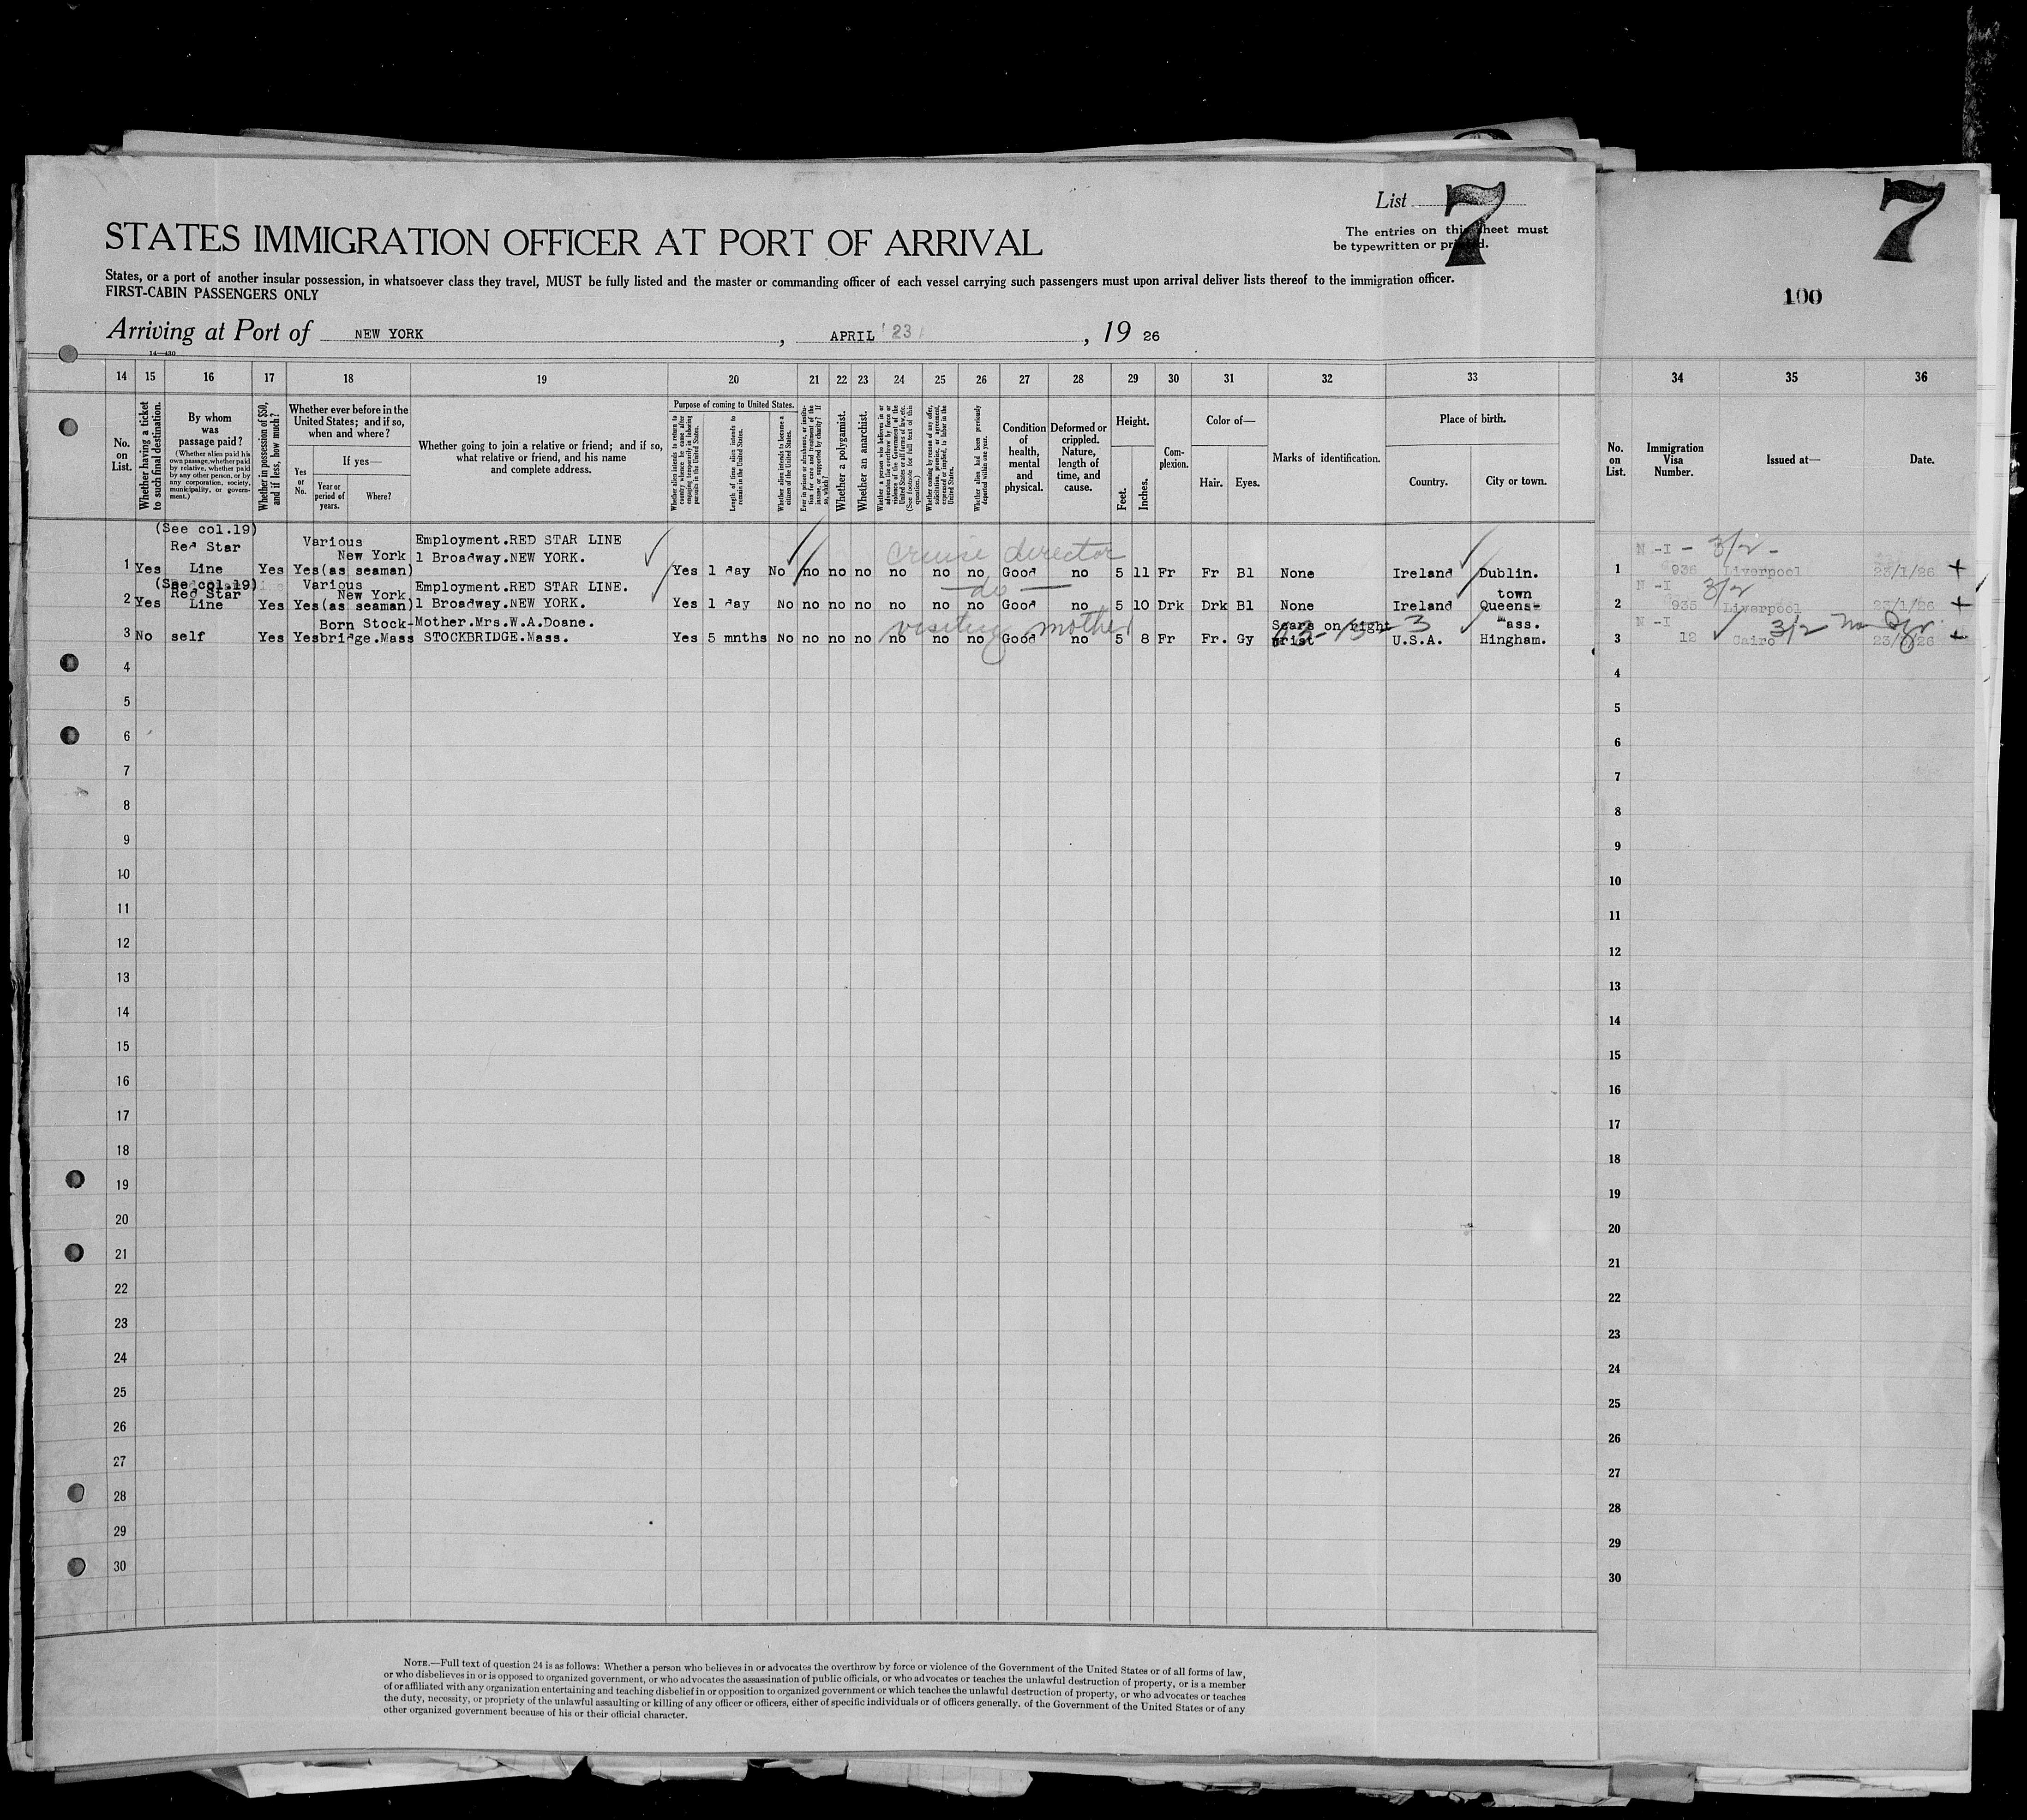 List 7
STATES IMMIGRATION OFFICER AT PORT OF ARRIVAL
The entries on this sheet must
be typewritten or printed.
States, or a port of another insular possession, in whatsoever class they travel, MUST be fully listed and the master or commanding officer of each vessel carrying such passengers must upon arrival deliver lists thereof to the immigration officer.
FIRST-CABIN PASSENGERS ONLY
Arriving at Port of NEW YORK, APRIL 23, 19 26
14—430
7
100
14 15 16 17 18 19 20 21 22 23 24 25 26 27 28 29 30 31 32 33 34 35 36
No. on List.
Whether having a ticket to such final destination.
By whom was passage paid?
(Whether alien paid his own passage, whether paid by relative, whether paid by any other person, or by any corporation, society, municipality, or government.)
Whether in possession of $50, and if less, how much?
Whether ever before in the United States; and if so, when and where?
Yes or No.
If yes—
Year or period of years.
Where?
Whether going to join a relative or friend; and if so, what relative or friend, and his name and complete address.
Purpose of coming to United States.
Whether alien intends to return to country whence he came after engaging temporarily in laboring pursuits in the United States.
Length of time alien intends to remain in the United States.
Whether alien intends to become a citizen of the United States.
Ever in prison or almshouse or institution for care and treatment of the insane, or supported by charity? If so, which?
Whether a polygamist.
Whether an anarchist.
Whether a person who believes in or advocates the overthrow by force or violence of the Government of the United States or all forms of law, etc. (See footnote for full text of this question.)
Whether coming by reason of any offer, solicitation, promise, or agreement, expressed or implied, to labor in the United States.
Whether alien had been previously deported within one year.
Condition of health, mental and physical.
Deformed or crippled. Nature, length of time, and cause.
Height.
Feet.
Inches.
Complexion.
Color of—
Hair.
Eyes.
Marks of identification.
Place of birth.
Country.
City or town.
No. on List.
Immigration Visa Number.
Issued at—
Date.
(See col.19) Various Employment.RED STAR LINE cruise director
Red Star New York 1 Broadway.NEW YORK. N -I - 3/2 -
1 Yes Line Yes Yes(as seaman) Yes 1 day No no no no no no no Good no 5 11 Fr Fr Bl None Ireland Dublin. 1 936 Liverpool 23/1/26 +
(See col.19) Various Employment.RED STAR LINE. — do — town N -I 3/2
Red Star New York
2 Yes Line Yes Yes(as seaman) 1 Broadway.NEW YORK. Yes 1 day No no no no no no no Good no 5 10 Drk Drk Bl None Ireland Queens- 2 935 Liverpool 23/1/26 +
Born Stock- Mother.Mrs.W.A.Doane. visiting mother Scars on right Mass. N -I 3/2
3 No self Yes Yes bridge.Mass STOCKBRIDGE.Mass. Yes 5 mnths No no no no no no no Good no 5 8 Fr Fr. Gy wrist U.S.A. Hingham. 3 12 Cairo +
4 4
5 5
6 6
7 7
8 8
9 9
10 10
11 11
12 12
13 13
14 14
15 15
16 16
17 17
18 18
19 19
20 20
21 21
22 22
23 23
24 24
25 25
26 26
27 27
28 28
29 29
30 30
NOTE.—Full text of question 24 is as follows: Whether a person who believes in or advocates the overthrow by force or violence of the Government of the United States or of all forms of law,
or who disbelieves in or is opposed to organized government, or who advocates the assassination of public officials, or who advocates or teaches the unlawful destruction of property, or is a member
of or affiliated with any organization entertaining and teaching disbelief in or opposition to organized government or which teaches the unlawful destruction of property, or who advocates or teaches
the duty, necessity, or propriety of the unlawful assaulting or killing of any officer or officers, either of specific individuals or of officers generally, of the Government of the United States or of any
other organized government because of his or their official character.